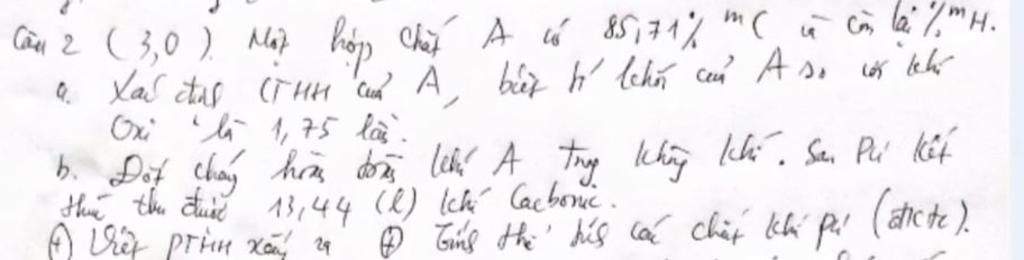 Câu 2 (3,0). Một hợp chất A có 85,71% mC và còn lại % mH.
a. Xác định CTHH của A, biết tỉ khối của A so với khí
Oxi là 1,75 lần.
b. Đốt cháy hoàn toàn khí A trong không khí. Sau PƯ kết
thúc thu được 13,44 (l) khí Cacbonic.
(+) Viết PTHH xảy ra (+) Tính thể tích các chất khí pư (đktc).